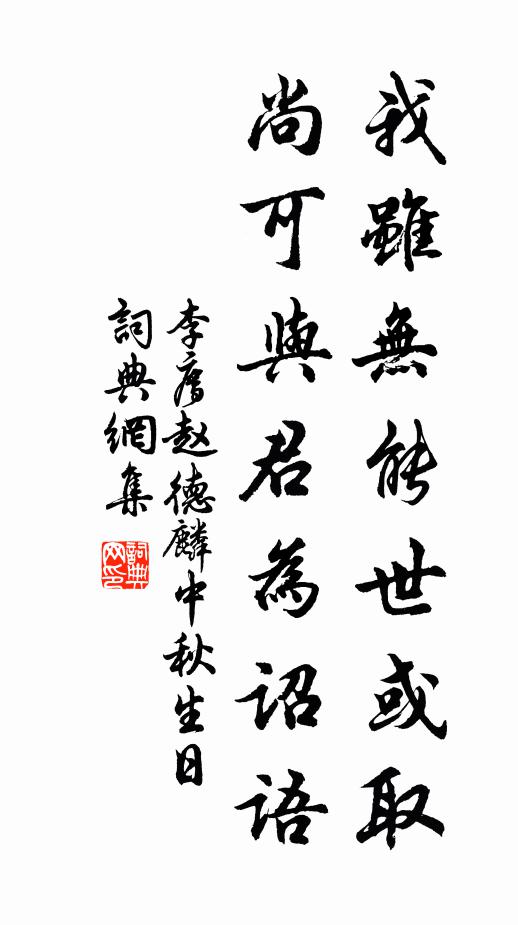 我雖無能世或取
尚可與君為詔語
李廌趙德麟中秋生日
詞典網集
詞典网印